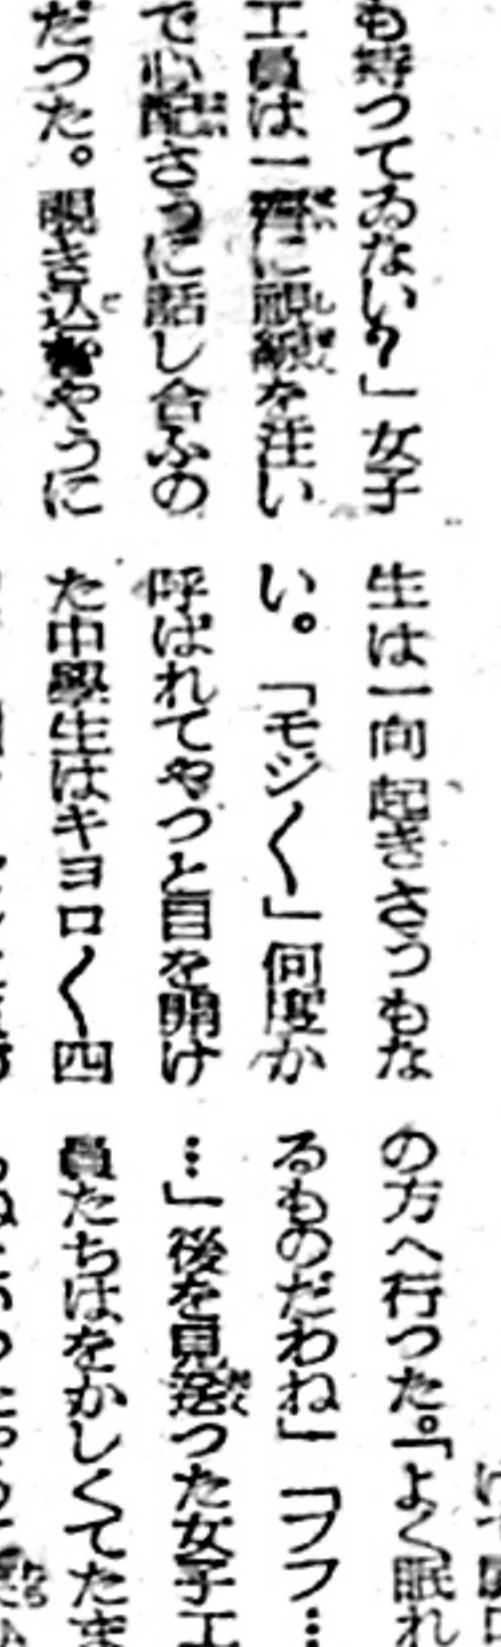 も持つてゐない?」女子
工員は一齊に視線を注い
で心配さうに話し合ふの
だつた。覗き込むやうに
生は一向起きさうもな
い。「モジ〱」何度か
呼ばれてやつと目を開け
た中學生はキヨロ〱四
の方へ行つた。「よく眠れ
るものだわね」「フフ…
…」後を見送つた女子工
員たちはをかしくてたま